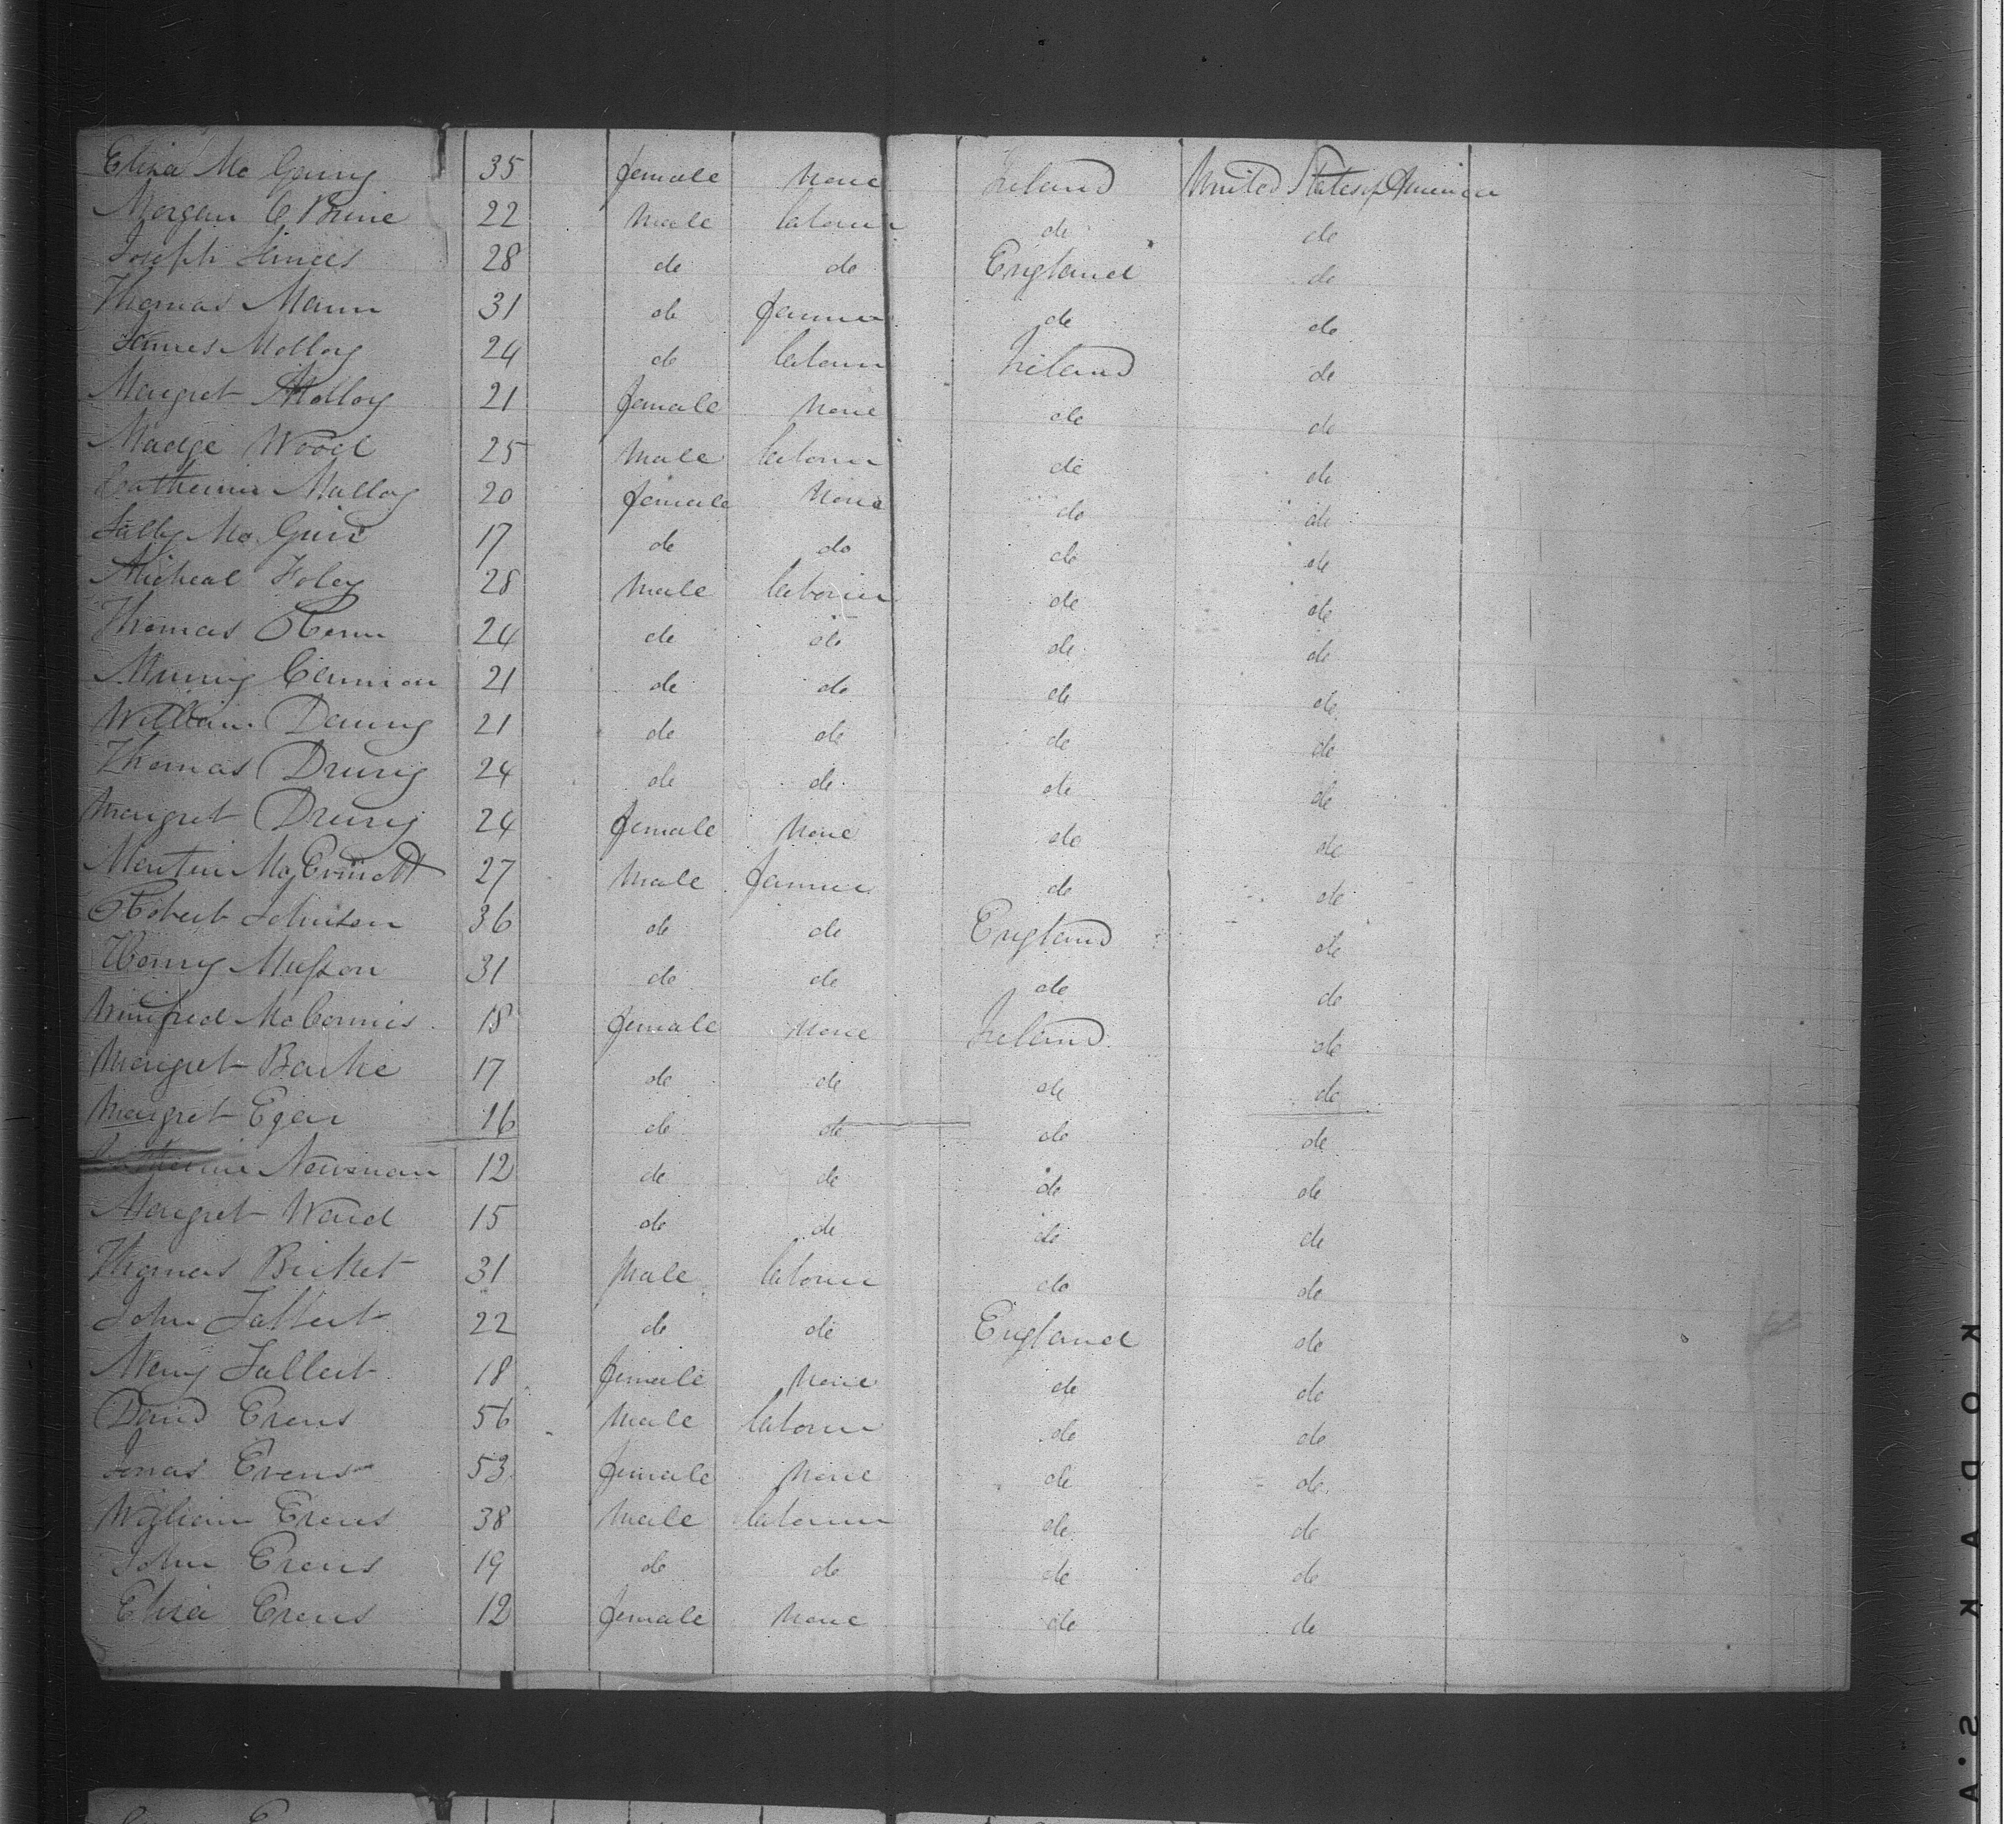 Eliza Mc Gaury 35 female None Ireland United States of America
Morgan O Brine 22 Male labourer do do
Joseph 28 do do England do
Thomas Mann 31 do farmer do do
James Molloy 24 do labourer Ireland do
Margret Molloy 21 female None do do
Madge Wood 25 Male labourer do do
Catherine Malloy 20 female None do do
Sally Mc Guire 17 do do do do
Micheal Foley 28 Male labourer do do
Thomas 24 do do do do
Murry Cannion 21 do do do do
William Drury 21 do do do do
Thomas Drury 24 do do do do
Margret Drury 24 female None do do
Martin 27 Male farmer do do
Robert Johnston 36 do do England do
Henry Musson 31 do do do do
Winifred Mc Cormies 18 female None Ireland do
Margret Burke 17 do do do do
Margret Egan 16 do do do do
Catherine Newman 12 do do do do
Margret Ward 15 do do do do
Thomas Bicket 31 Male labourer do do
John Talbert 22 do do England do
Mary Talbert 18 female None do do
David Evens 56 Male labourer do do
Jonas Evens 53 female None do do
William Evens 38 Male labourer do do
John Evens 19 do do do do
Eliza Evens 12 female None do do
KODAK S.A